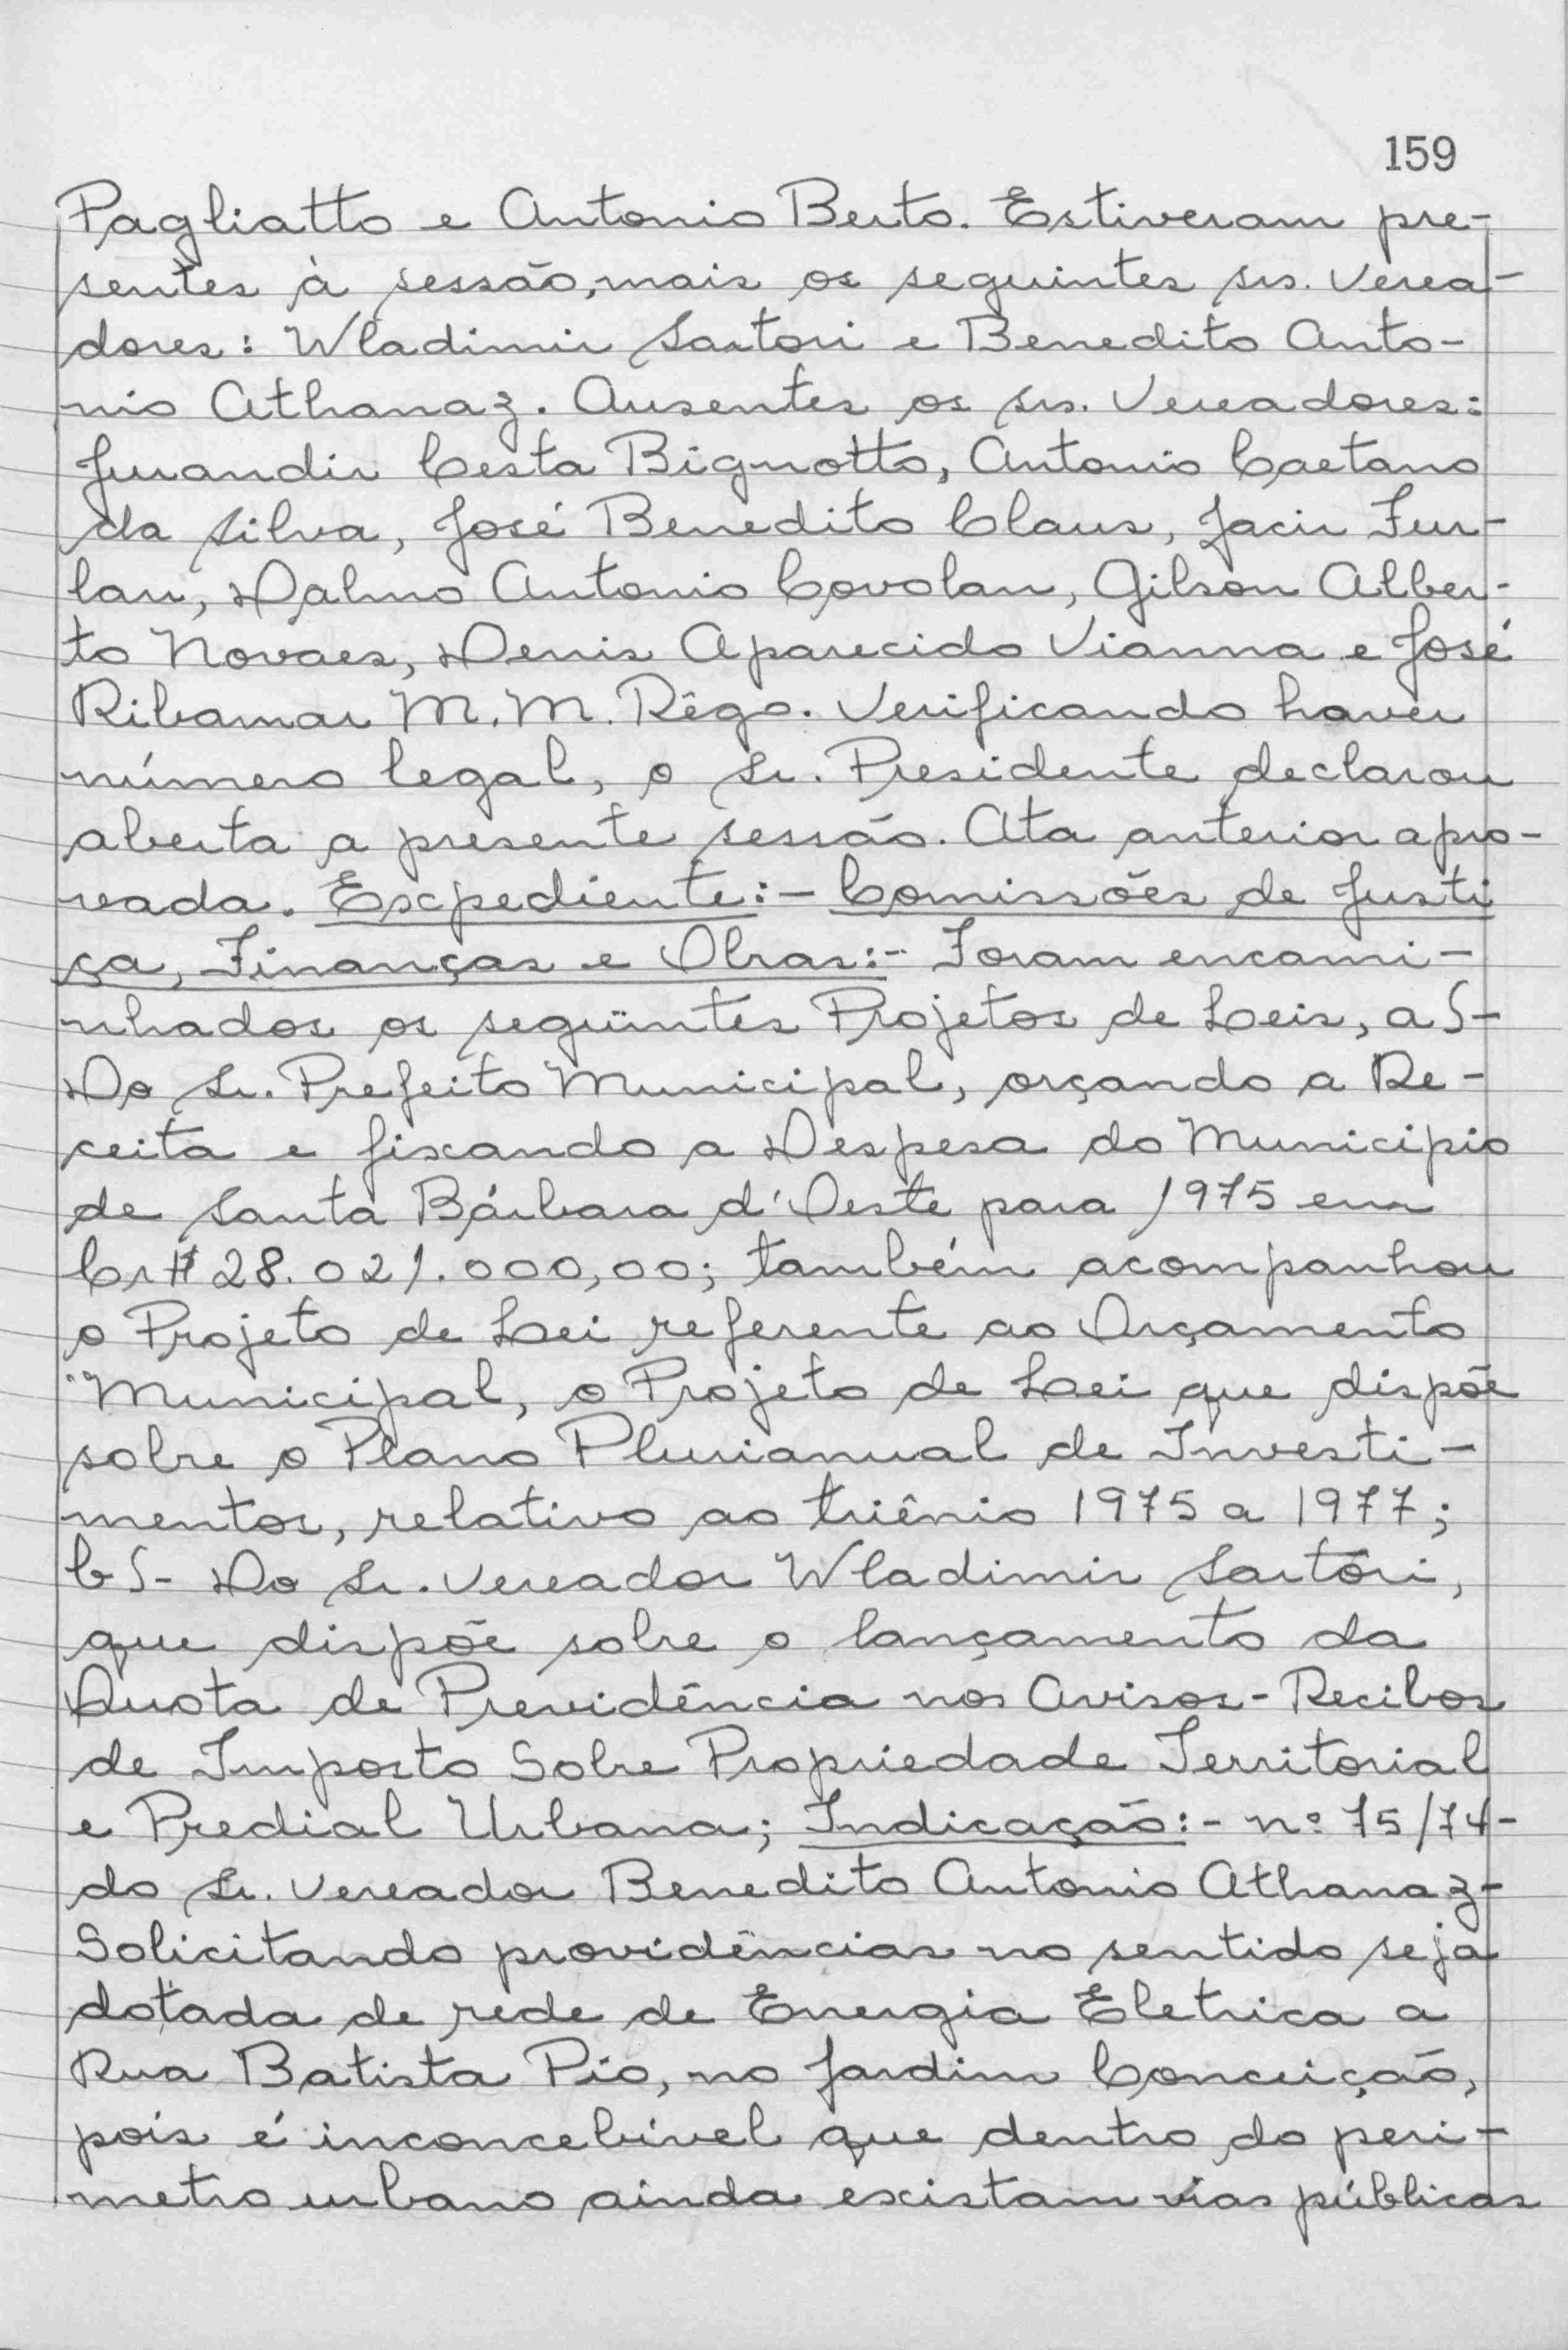 159
Pagliatto e Antonio Berto. Estiveram pre-
sentes à sessão, mais os seguintes srs. Verea-
dores: Wladimir Sartori e Benedito Anto-
nio Athanaz. Ausentes os srs. Vereadores:
Jurandir Cesta Bignotto, Antonio Caetano
da Silva, José Benedito Claus, Jacir Fur-
lan, Dalmo Antonio Covolan, Gilson Alber-
to Novaes, Denis Aparecido Vianna e José
Ribamar M. M. Rêgo. Verificando haver
número legal, o Sr. Presidente declarou
aberta a presente sessão. Ata anterior apro-
vada. Expediente:- Comissões de Justi
ça, Finanças e Obras:- Foram encami-
nhados os següintes Projetos de Leis, a)-
Do Sr. Prefeito Municipal, orçando a Re-
ceita e fixando a Despesa do Municipio
de Santa Bárbara d'Oeste para 1975 em
Cr$ 28.021.000,00; também acompanhou
o Projeto de Lei referente ao Orçamento
Municipal, o Projeto de Lei que dispõe
sobre o Plano Plurianual de Investi-
mentos, relativo ao triênio 1975 a 1977;
b)- Do Sr. Vereador Wladimir Sartori,
que dispõe sobre o lançamento da
Quota de Previdência nos Avisos-Recibos
de Imposto Sobre Propriedade Territorial
e Predial Urbana; Indicação:- nº 75/74-
do Sr. Vereador Benedito Antonio Athanaz-
Solicitando providências no sentido seja
dotada de rede de Energia Eletrica a
Rua Batista Pio, no Jardim Conceição,
pois é inconcebivel que dentro do peri-
metro urbano ainda existam vias públicas